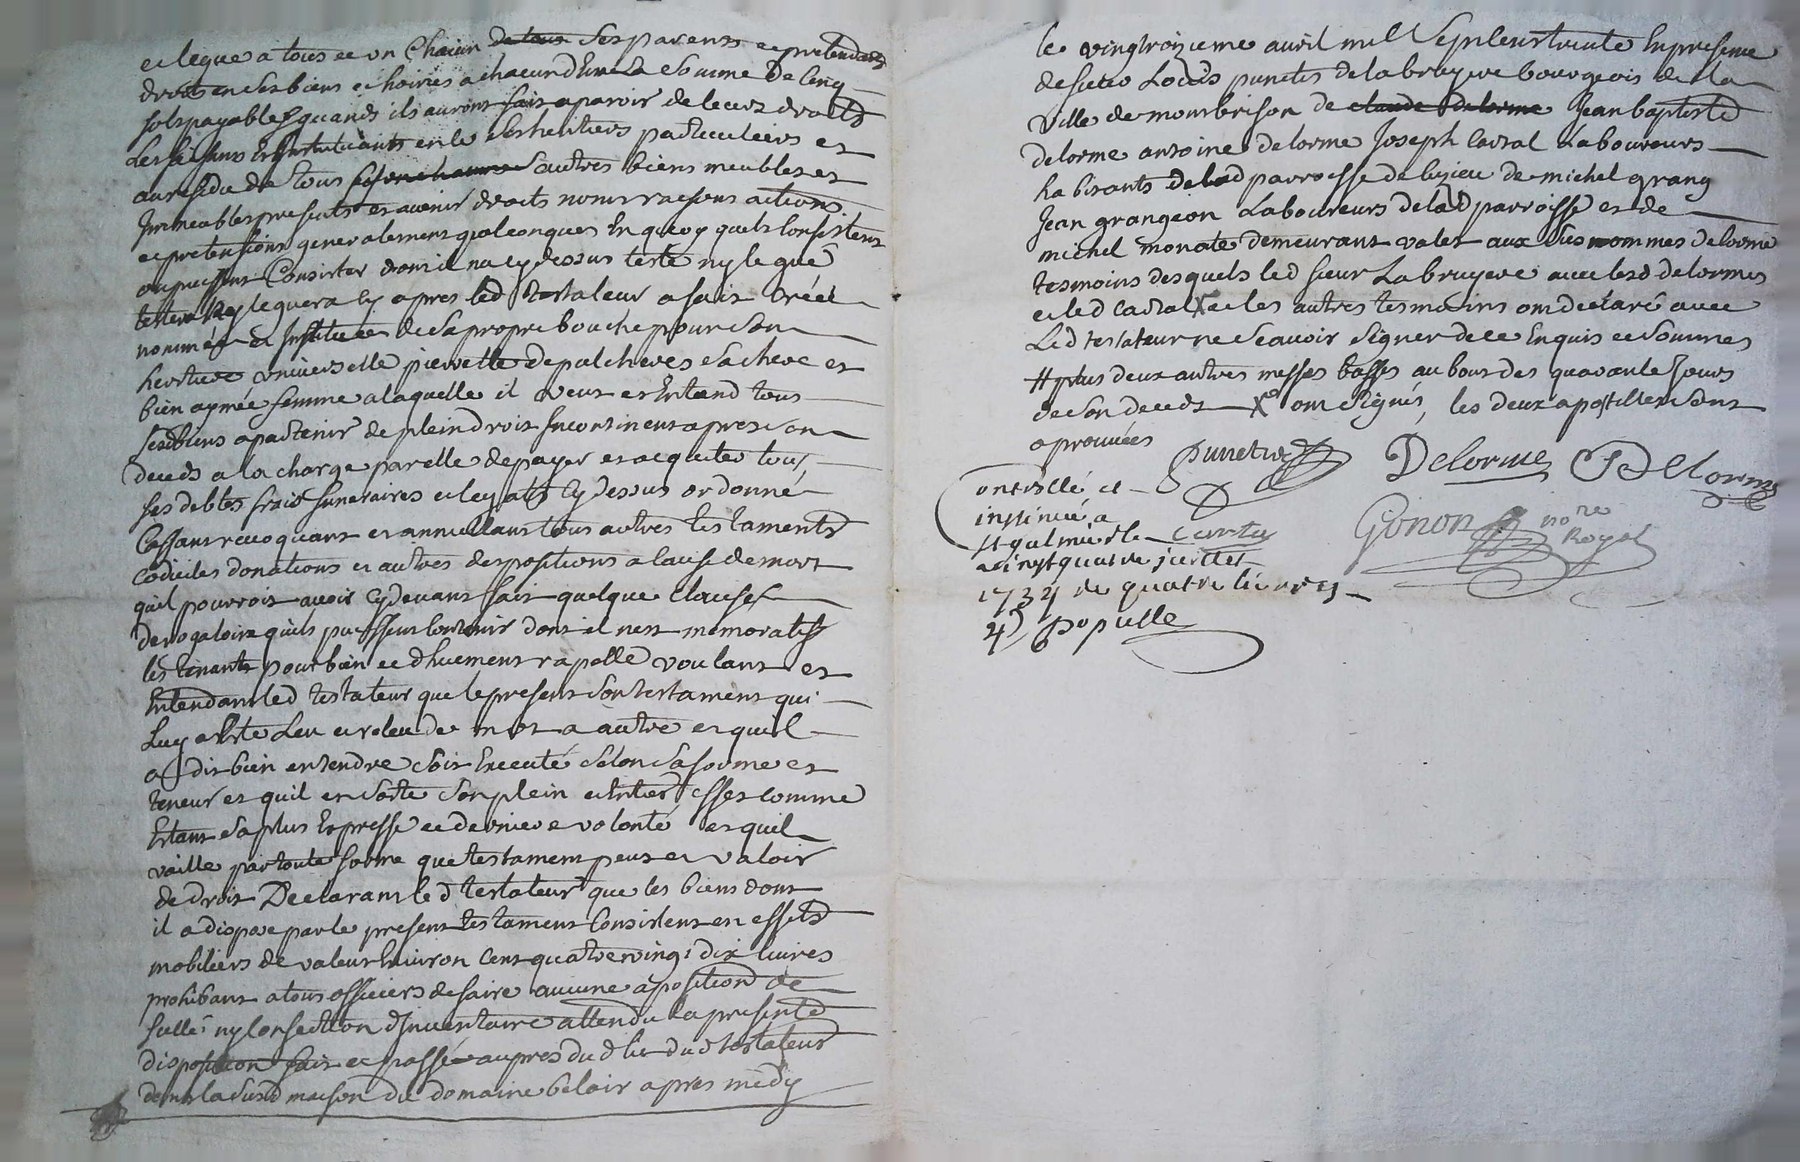 et legue a tous et un Chacun de tous ses parents et pretendants
droits en ses biens et hoiries a chacun d'eux La somme De Cinq
sols payables quands ils auront fait aparoir de leurs droits
Les faisants et instituants en le ses heritiers particuliers et
au residu de tous autres biens meubles et
Immeubles presents et avenir droits noms raisons actions
et pretensions generalement quelconques En quoy quels Consistent
ou puissent Consister dont il na cy dessus testé ny legué
testera ny leguera cy apres led testateur a fait créé
nommée et Instituée de sa propre bouche pour son
heritiere universelle pierrette depalcheves sa chere et
bien aymée femme a laquelle il veut et Entend tous
sesd biens apartenir de plein droit Incontinent apres son
deceds a la charge par elle de payer et acquiter tous
ses debtes frais funeraires et legats cy dessus ordonné
Cassant revoquant et annullant tous autres testaments
codiciles donations et autres despositions a cause de mort
quil pourroit avoir cy devant fait quelque Clauses
derogatoire quils puissent Contenir dont il nest memoratif
les tenants pour bien et dhuement rapellé voulant et
Entendant led testateur que le present son testament qui
Luy a Esté Leu et releu de mot a autre et quil
a dit bien entendre soit Executé selon sa forme et
teneur et quil en sorte son plein et Entier effet comme
Estant sa plus Expresse et derniere volonté et quil
vaille par toute forme que testament peut et valoir
de droit Declarant led testateur que les biens dont
il a disposé par le present testament Consistent en effets
mobiliers de valeur Environ Cent quatre vingt dix livres
prohibant a tous officiers de faire aucune aposition de
scellé ny Confection d'Inventaire attendu La presente
disposition fait et passé aupres dud lit dud testateur
dans la susd maison du domaine belair apres midy
le vingtroizieme avril mil Sept cent trente En presence
de sieur Louis punctis de labruyere bourgeois de la
Ville de montbrison de claude delorme Jean baptiste
delorme antoine delorme Joseph Cadral Laboureurs
habitants delad parroisse de luzieu de michel grang
Jean grangeon Laboureurs delad parroisse et de
michel monate demeurant valet aux susnommes delorme
tesmoins desquels led sieur Labruyere avec lesd delormes
et led Cadral X et les autres tesmoins ont declaré avec
Led testateur ne Scavoir signer de ce Enquis et Sommes
# plus deux autres messes basses au bout des quarante Jours
de son deceds X ont signés, les deux apostilles sont
aprouvées
Punctis Delorme JB Delorme
Controllé et
insinué a
st galmier le
vingt quatre juillet
173 de quatre livres
4) Populle
Gonon no.re
Royal